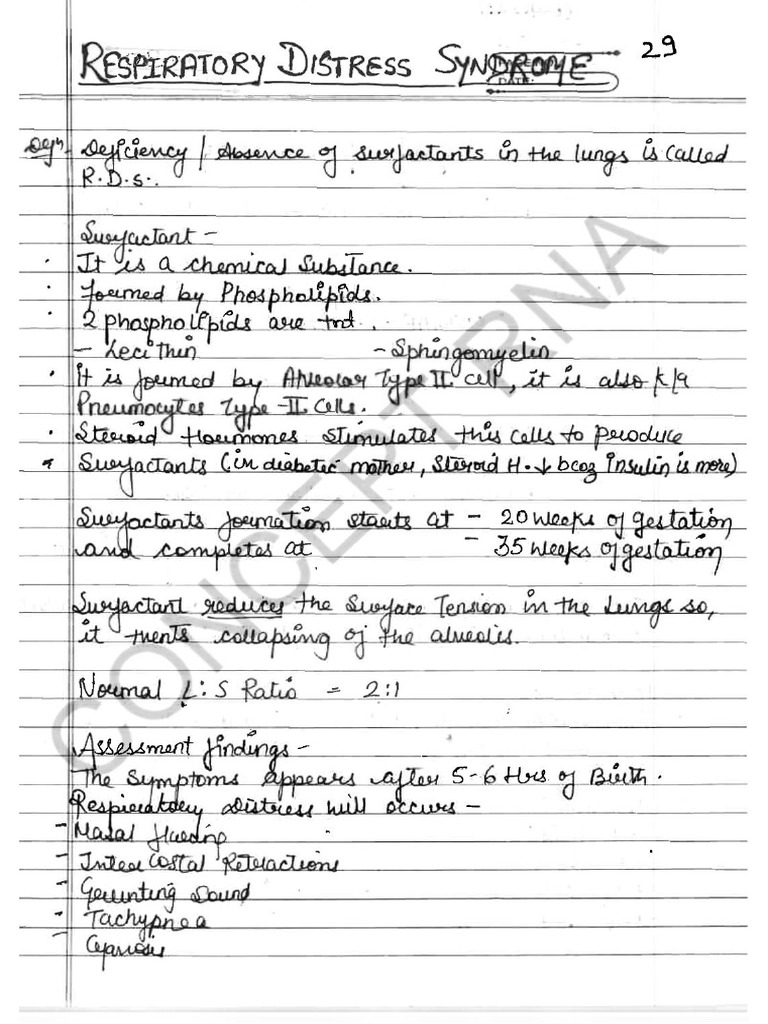 RESPIRATORY DISTRESS SYNDROME 29
Defn Deficiency / Absence of surfactants in the lungs is called
R.D.S..
Surfactant -
· It is a chemical substance.
· formed by Phospholipids.
· 2 phospholipids are tnt.
- Lecithin - Sphingomyelin
· it is formed by Alveolar Type II cell, it is also k/a
Pneumocytes Type-II cells.
· Steroid Hormones stimulates this cells to produce
* Surfactants (in diabetic mother, Steroid H. ↓ bcoz insulin is more)
Surfactants formation starts at - 20 weeks of gestation
and completes at - 35 weeks of gestation
Surfactant reduces the Surface Tension in the Lungs so,
it tnents collapsing of the alveolis.
Normal L:S Ratio = 2:1
Assessment findings -
The Symptoms appears after 5-6 Hrs of Birth.
Respiratory Distress will occurs -
- Nasal flaring
- Inter costal Retractions
- Grunting Sound
- Tachypnea
- Cyanosis
CONCEPT RNA